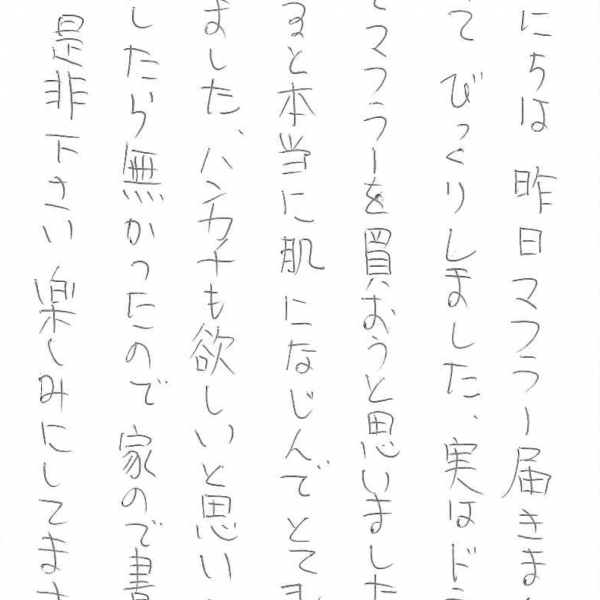 にちは 昨日マフラー届きま
て びっくりしました、実はド
マフラーを買おうと思いました
ると本当に肌になじんでとても
ました、ハンカチも欲しいと思い
したら無かったので家ので書
是非下さい楽しみにしてます